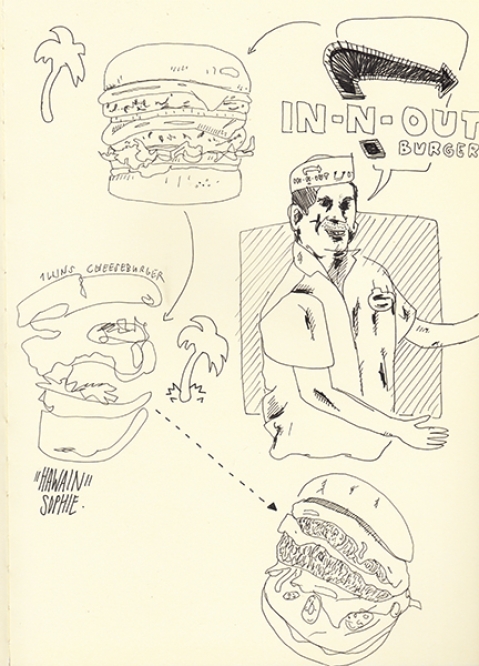 IN-N-OUT
BURGER
IN-N-OUT
TWINS CHEESEBURGER
"HAWAIN"
SOPHIE.